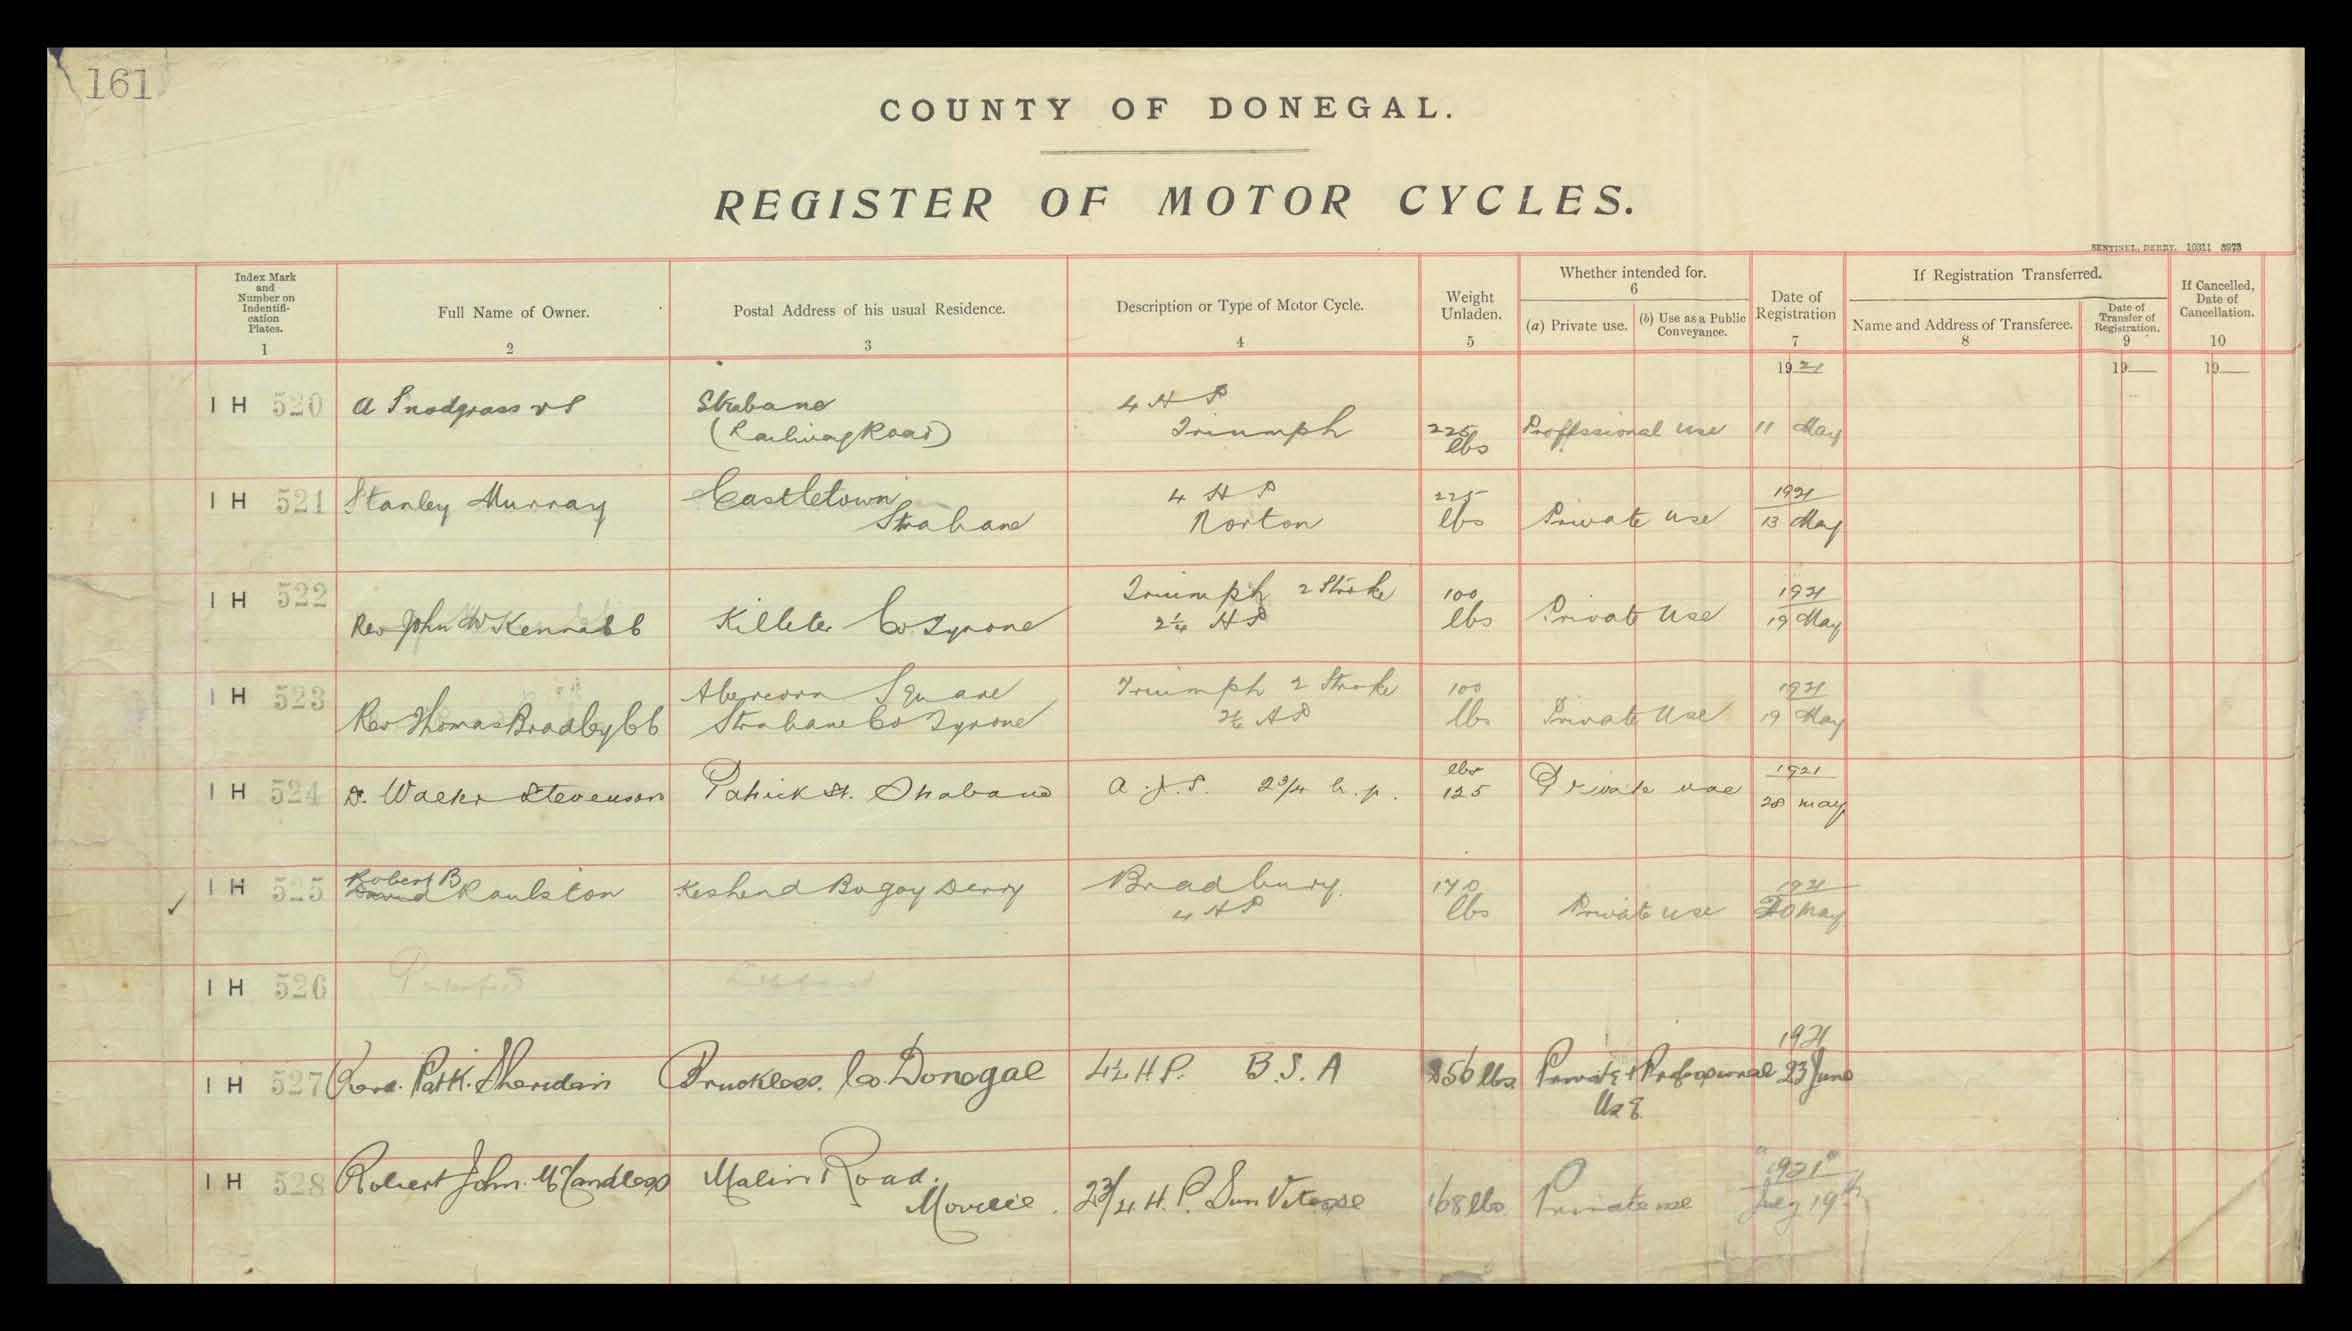 161
COUNTY OF DONEGAL.
REGISTER OF MOTOR CYCLES.
SENTINEL, DERRY. 10311 8973
Index Mark and Number on Indentifi-cation Plates. 1
Full Name of Owner. 2
Postal Address of his usual Residence. 3
Description or Type of Motor Cycle. 4
Weight Unladen. 5
Whether intended for. 6
(a) Private use.
(b) Use as a Public Conveyance.
Date of Registration 7
If Registration Transferred.
Name and Address of Transferee. 8
Date of Transfer of Registration. 9
If Cancelled, Date of Cancellation. 10
1921 19 19
IH 520 A Snodgrass VS Strabane 4 HP
(Railway Road) Triumph 225 lbs Proffssional use 11 May
IH 521 Stanley Murray Castletown 4 HP 225 1921
Strabane Norton lbs Private use 13 May
IH 522 Triumph 2 Stroke 100 1921
Rev John Killeter Co Tyrone 2¼ HP lbs Private Use 19 May
IH 523 Abercorn Square Triumph 2 Stroke 100 1921
Rev Thomas Bradley CC Strabane Co Tyrone HP lbs Private Use 19 May
IH 524 D. Walter Stevenson Patrick St. Strabane A.J.S. 2¾ h.p. lbs 125 Private use 1921
28 May
IH 525 Robert B Roulston Keshend Bogay Derry Bradbury. 170 1921
4 HP lbs Private use 20 May
IH 526
1921
IH 527 Rev. Patk. Sheridan Bruckless. Co. Donegal 4½ H.P. B.S.A 256 lbs Private & Professional 23 June
Use
IH 528 Robert John McCandless Malin Road. 1921
Moville. 2¾ H.P. Sun Vitesse 168 lbs. Private use July 19th